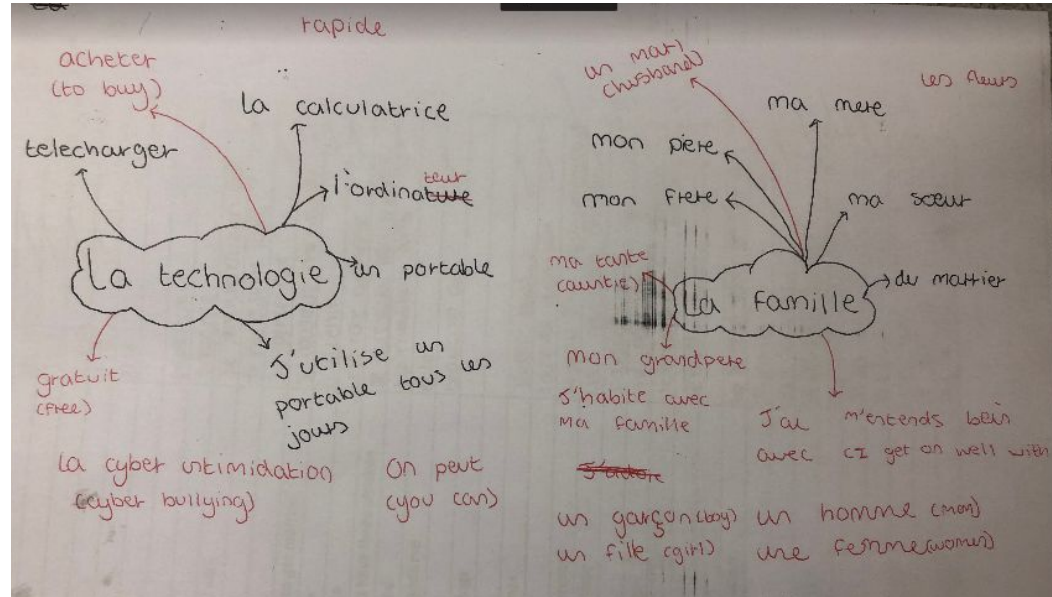 rapide
acheter
(to buy)
la calculatrice
telecharger
l'ordinateur
La technologie
un portable
gratuit
(free)
J'utilise un
portable tous les
jours
la cyber intimidation
(cyber bullying)
On peut
(you can)
un mari
(husband)
les fleurs
ma mere
mon piere
mon frere
ma soeur
ma tante
(auntie)
La famille
du marrier
mon grandpere
J'habite avec
ma famille
J'ai m'entends bein
avec (I get on well with
J'adore
un garçon (boy)
un homme (man)
un fille (girl)
une femme (women)